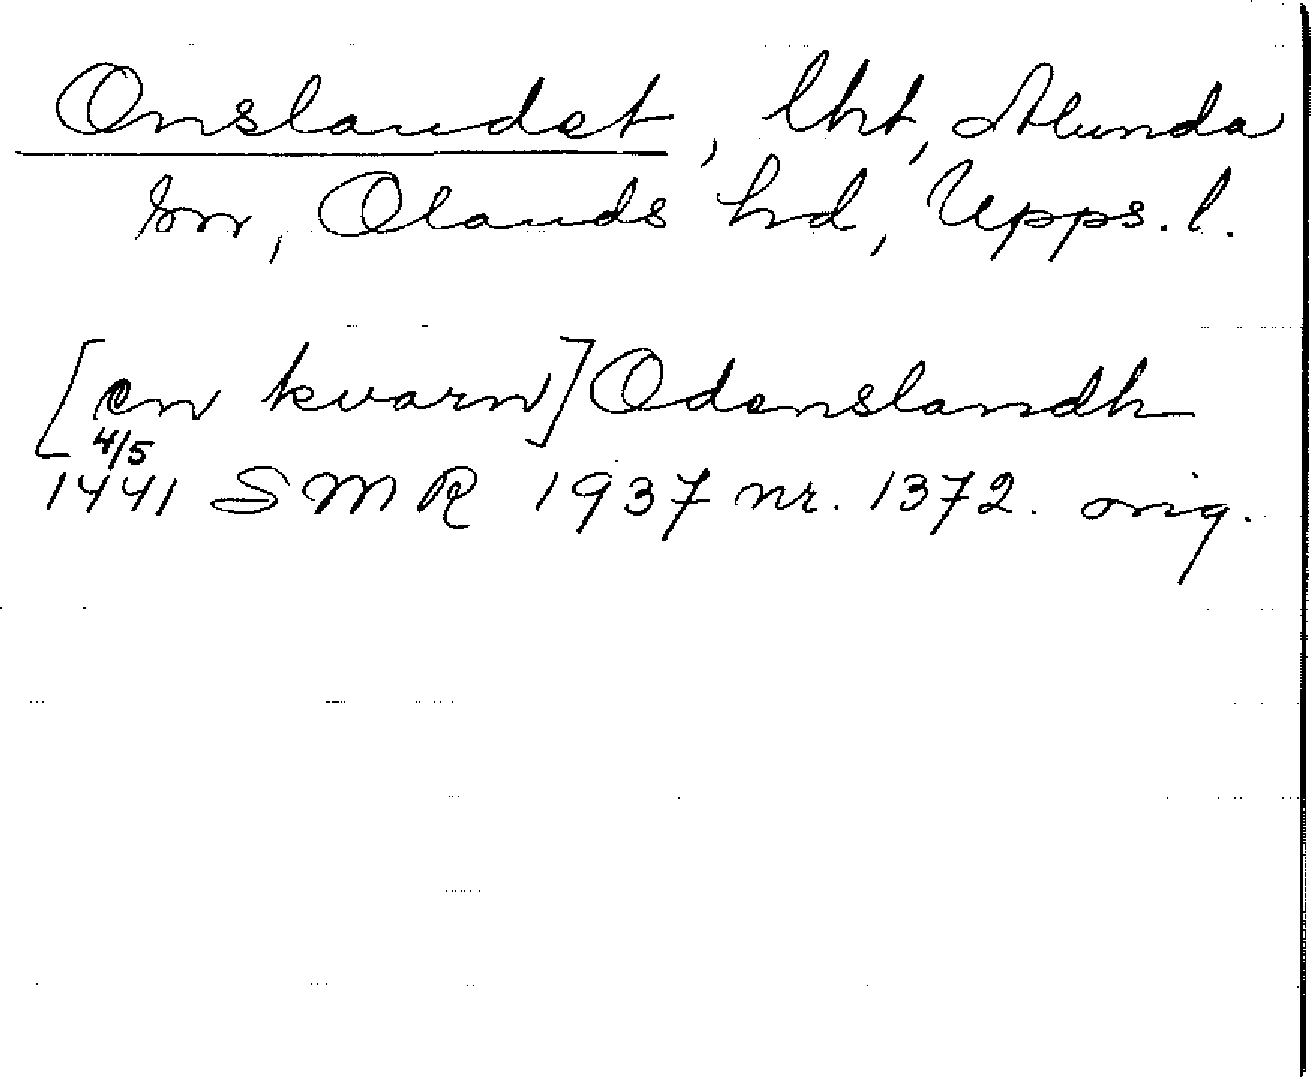 Onslandet, lht, Alunda
sn, Olands hd, Upps. l.
[en kvarn] Odenslandh
4/5
1441 SMR 1937 nr. 1372. orig.